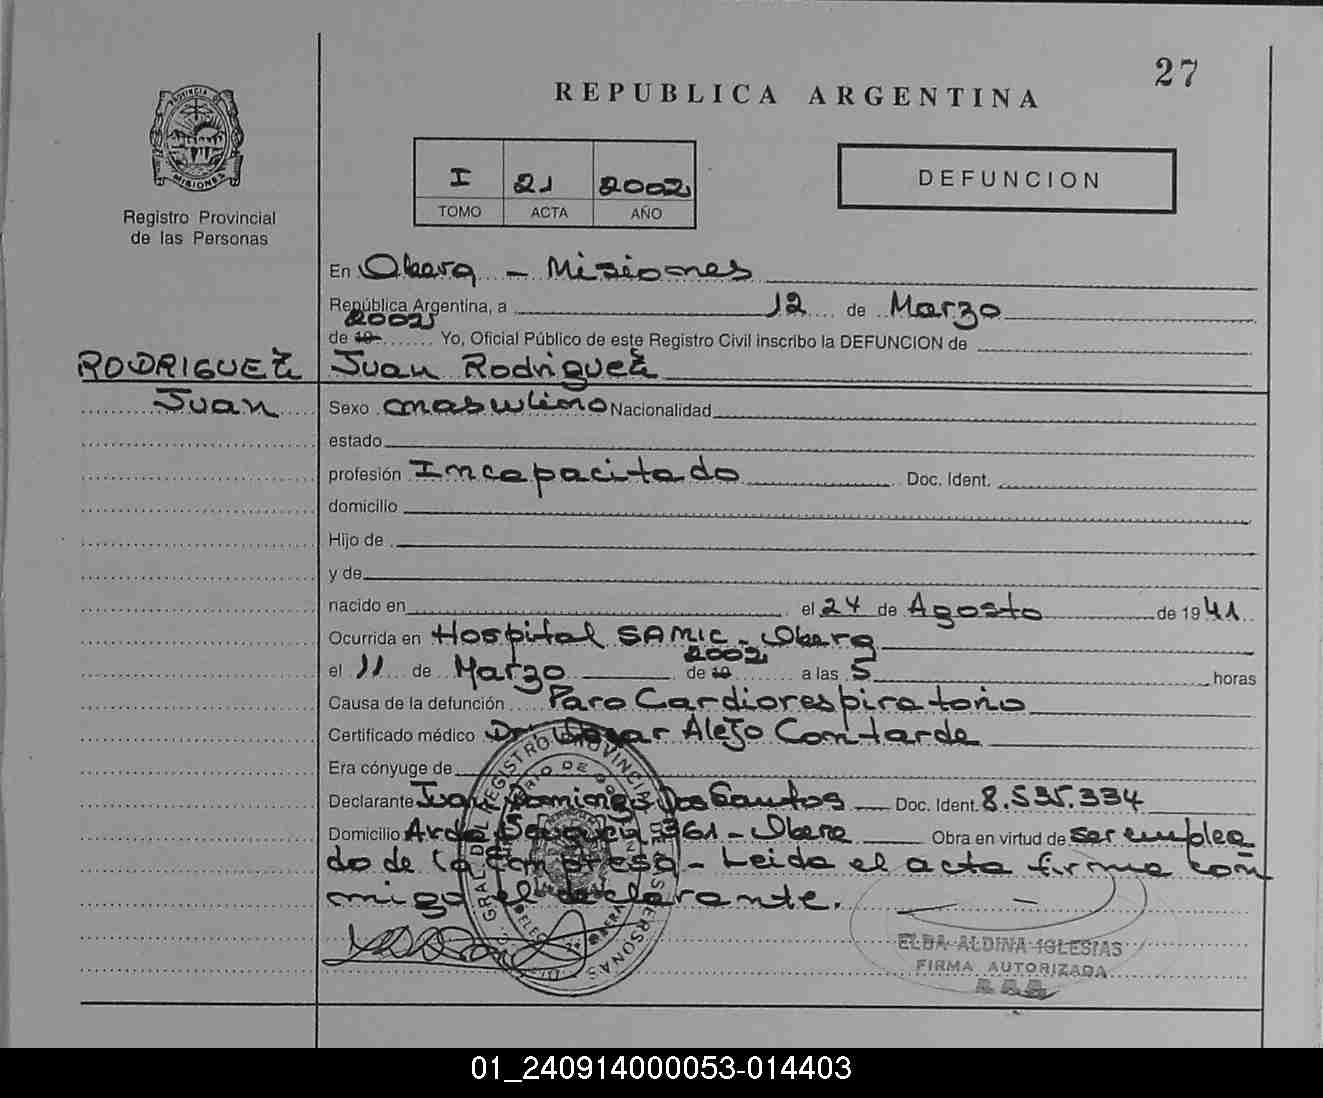 27
REPUBLICA ARGENTINA
PROVINCIA DE
MISIONES
Registro Provincial
de las Personas
I 21 2002
TOMO ACTA AÑO
DEFUNCION
En Obera - Misiones
República Argentina, a 12 de Marzo
2002
de 19 Yo, Oficial Público de este Registro Civil inscribo la DEFUNCION de
RODRIGUEZ Juan Rodriguez
Juan Sexo masculino Nacionalidad
estado
profesión Incapacitado Doc. Ident.
domicilio
Hijo de
y de
nacido en el 24 de Agosto de 1941
Ocurrida en Hospital SAMIC - Obera
2002
el 11 de Marzo de 19 a las 5 horas
Causa de la defunción Paro Cardiorespiratorio
Certificado médico Dr. Alejo Contarde
Era cónyuge de
Declarante Juan Domingo Dos Santos Doc. Ident. 8.535.334
Domicilio Avda 961 - Obera Obra en virtud de ser emplea
do de la Empresa - Leida el acta firma con
migo el declarante.
ELBA ALDINA IGLESIAS
FIRMA AUTORIZADA
01_240914000053-014403